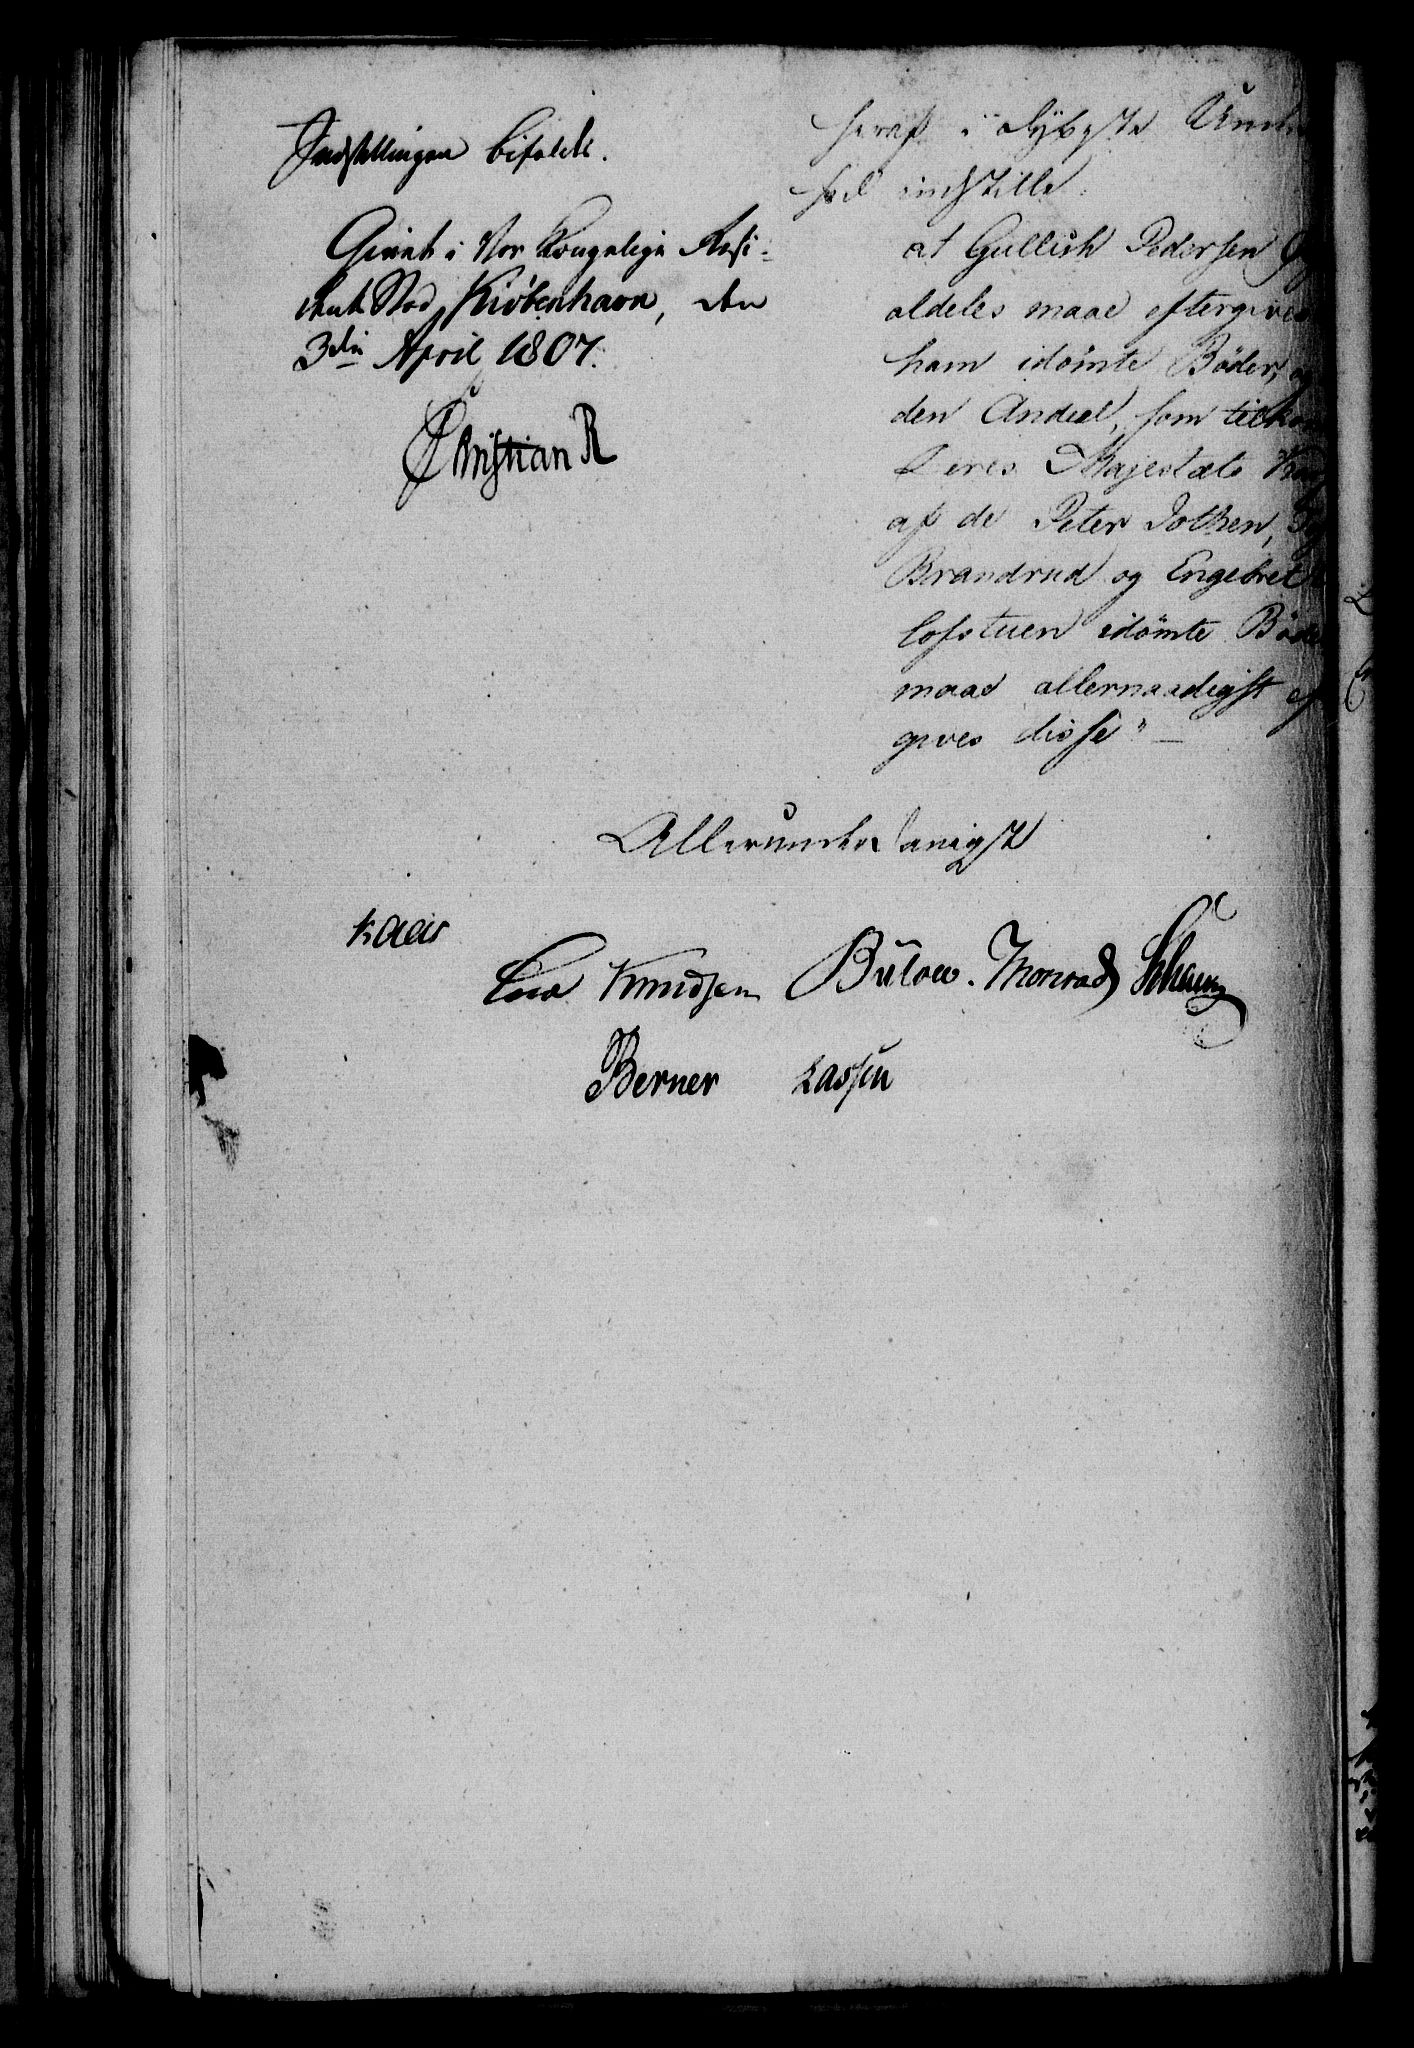 Indstillingen bifaldes.
Givet i Vor Kongelige Resi-
dentz Stad Kiöbenhavn, den
3die April 1807.
Christian R
heraf i dybeste Under
at Gullick Pedersen
aldeles maae eftergives
ham idömte Böder, og
den Andeel, som tilkom
Deres Majestæts
af de Peter Jothen,
Brandrud og Engebret
lofstuen idömte Böde
maae allernaadigst ef
gives disse" —
Allerunderdanigst
Kaas
Cold Knudsen Bülow. Monrad Schønning
Berner Lassen